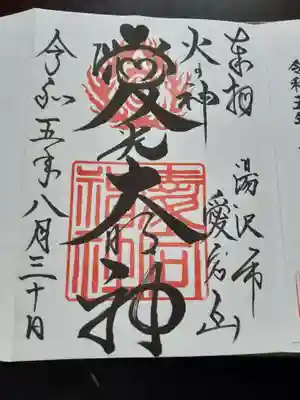 奉拝
湯沢市
愛宕山
火の神
愛宕大神
愛宕神社
令和五年八月三十日
令和五年